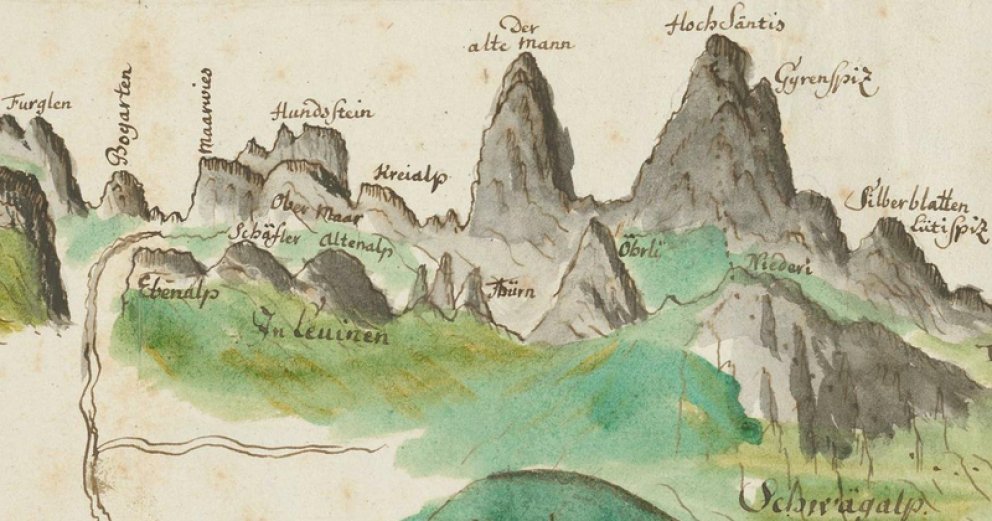 Der
alte Mann
Hoch Säntis
Gyrenspiz
Furglen
Bogarten
Maarwies
Hundsstein
Kreialp
Ober Maar
Silberblatten
Lütispiz
Schäfler
Altenalp
Öhrli
Niederi
Ebenalp
Thürn
In Leuinen
Schwägalp.